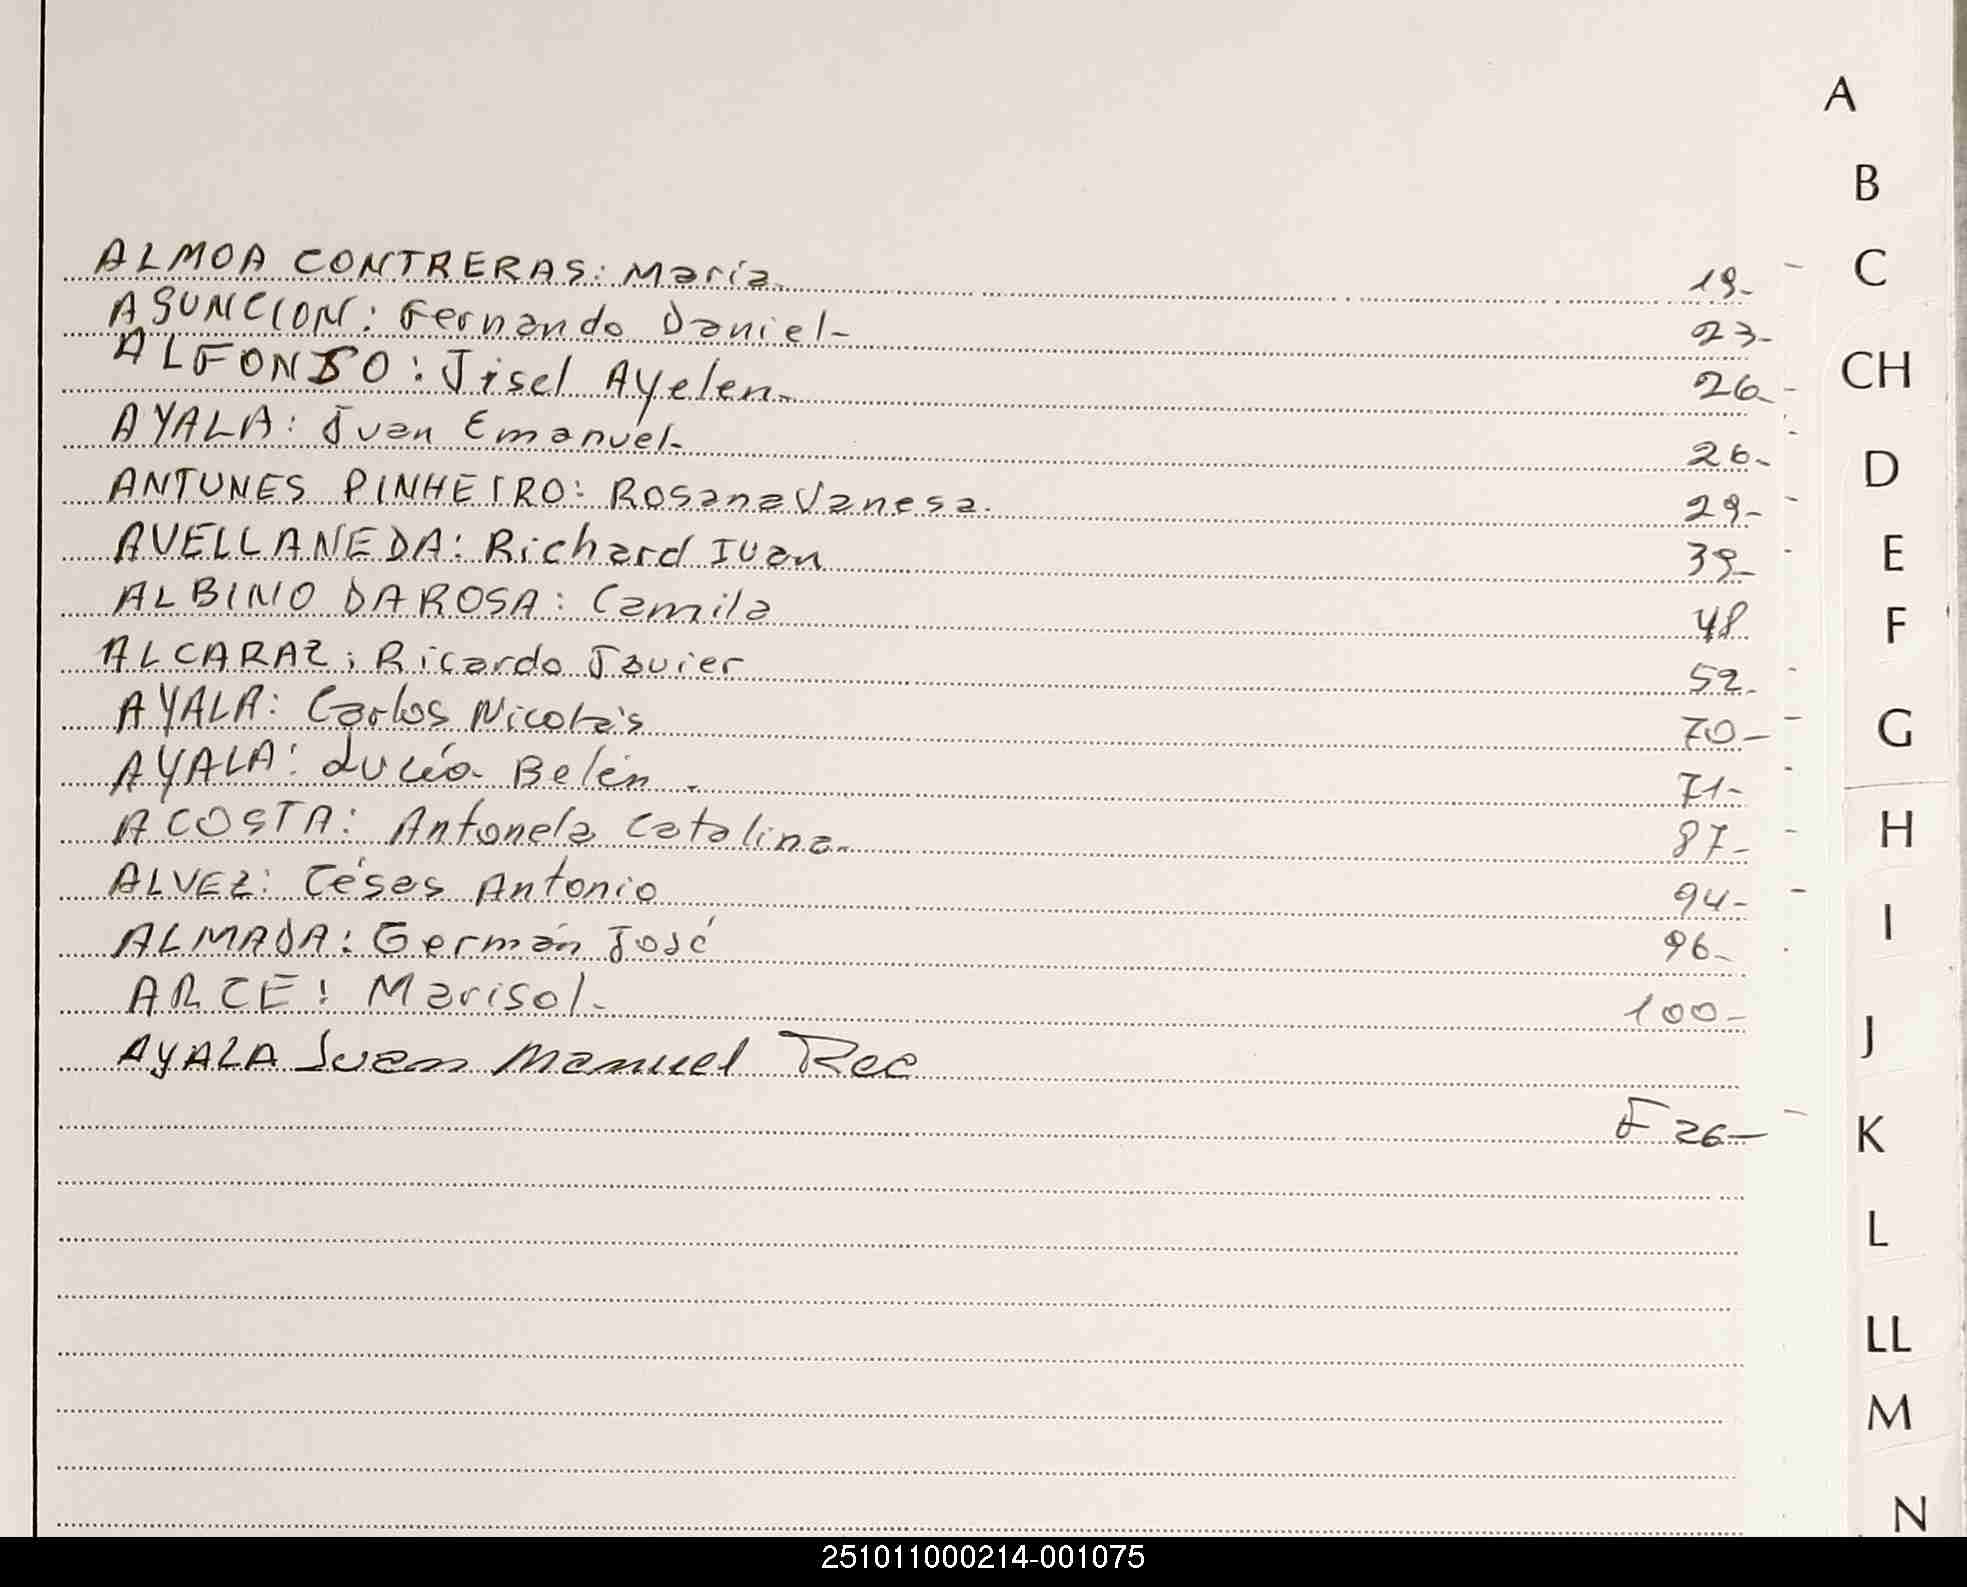 A
B
ALMOA CONTRERAS: María. 19- - C
ASUNCION: Fernando Daniel- 23-
ALFONSO: Jisel Ayelen- 26- - CH
AYALA: Juan Emanuel- 26- - D
ANTUNES PINHEIRO: Rosana Vanesa. 29- -
AVELLANEDA: Richard Ivan 39- - E
ALBINO DAROSA: Camila 48 F
ALCARAZ: Ricardo Javier 52- -
AYALA: Carlos Nicolás 70- - G
AYALA: Lucía Belén. 71- -
ACOSTA: Antonela Catalina- 87- - H
ALVEZ: Céses Antonio 94- -
ALMADA: Germán José 96- I
ARCE: Marisol- 100-
AYALA Juan Manuel Rec J
F 26- - K
L
LL
M
N
251011000214-001075